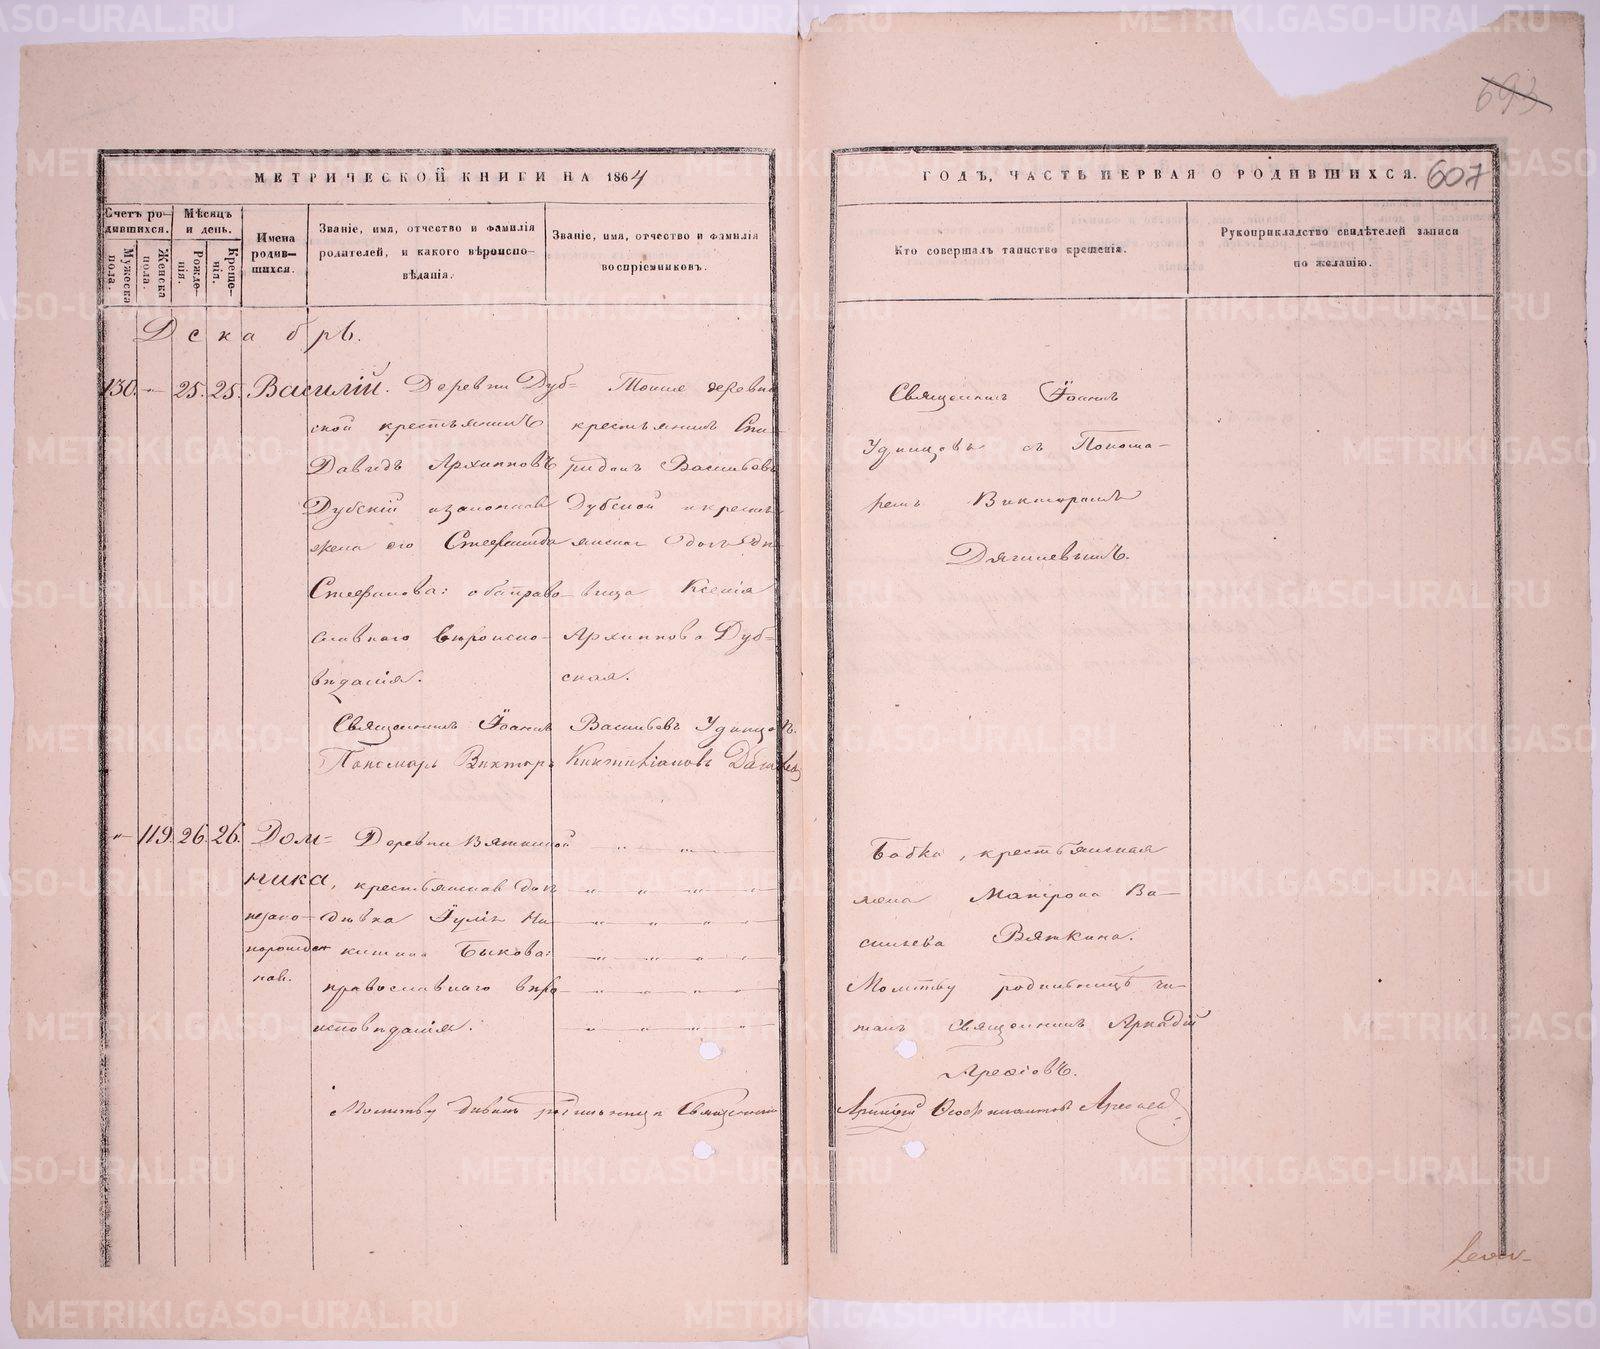 693
МЕТРИЧЕСКОЙ КНИГИ НА 1864
ГОДЪ, ЧАСТЬ ПЕРВАЯ О РОДИВШИХСЯ.
607
Счетъ ро-
дившихся.
Мужеска
пола.
Женска
пола.
Мѣсяцъ
и день.
Рожде-
нія.
Креще-
нія.
Имена
родив-
шихся.
Званіе, имя, отчество и фамилія
родителей, и какого вѣроиспо-
вѣданія.
Званіе, имя, отчество и фамилія
воспріемниковъ.
Кто совершалъ таинство крещенія.
Рукоприкладство свидѣтелей записи
по желанію.
Декабрь.
130. - 25. 25. Василій.
Деревни Дуб=
ской крестьянинъ
Давидъ Архиповъ
Дубскій и законная
жена его
Стефанова: оба право-
славнаго вѣроиспо-
вѣданія.
Тойже деревни
крестьянинъ Спи-
ридонъ Васильевъ
Дубской и кресть-
янская дочь дѣ-
вица Ксенія
Архипова Дуб=
ская.
Священникъ Іоаннъ
Удинцовъ съ Понома-
ремъ Викторомъ
Дягилевымъ.
Священникъ Іоаннъ Васильевъ Удинцовъ.
Пономарь Викторъ Дягилевъ
" 119. 26. 26. Дом=
ника,
незако-
норожден
ная.
Деревни Вяткиной
крестьянская дочь
дѣвка Іулія Ни-
китина Быкова:
православнаго вѣро-
исповѣданія.
Бабка, крестьянская
жена Матрона Ва-
сильева Вяткина.
Молитву родильницѣ чи-
талъ священникъ Аркадій
Арефіевъ.
Молитву давалъ родильницѣ Священникъ
Аркадій Арефьевъ